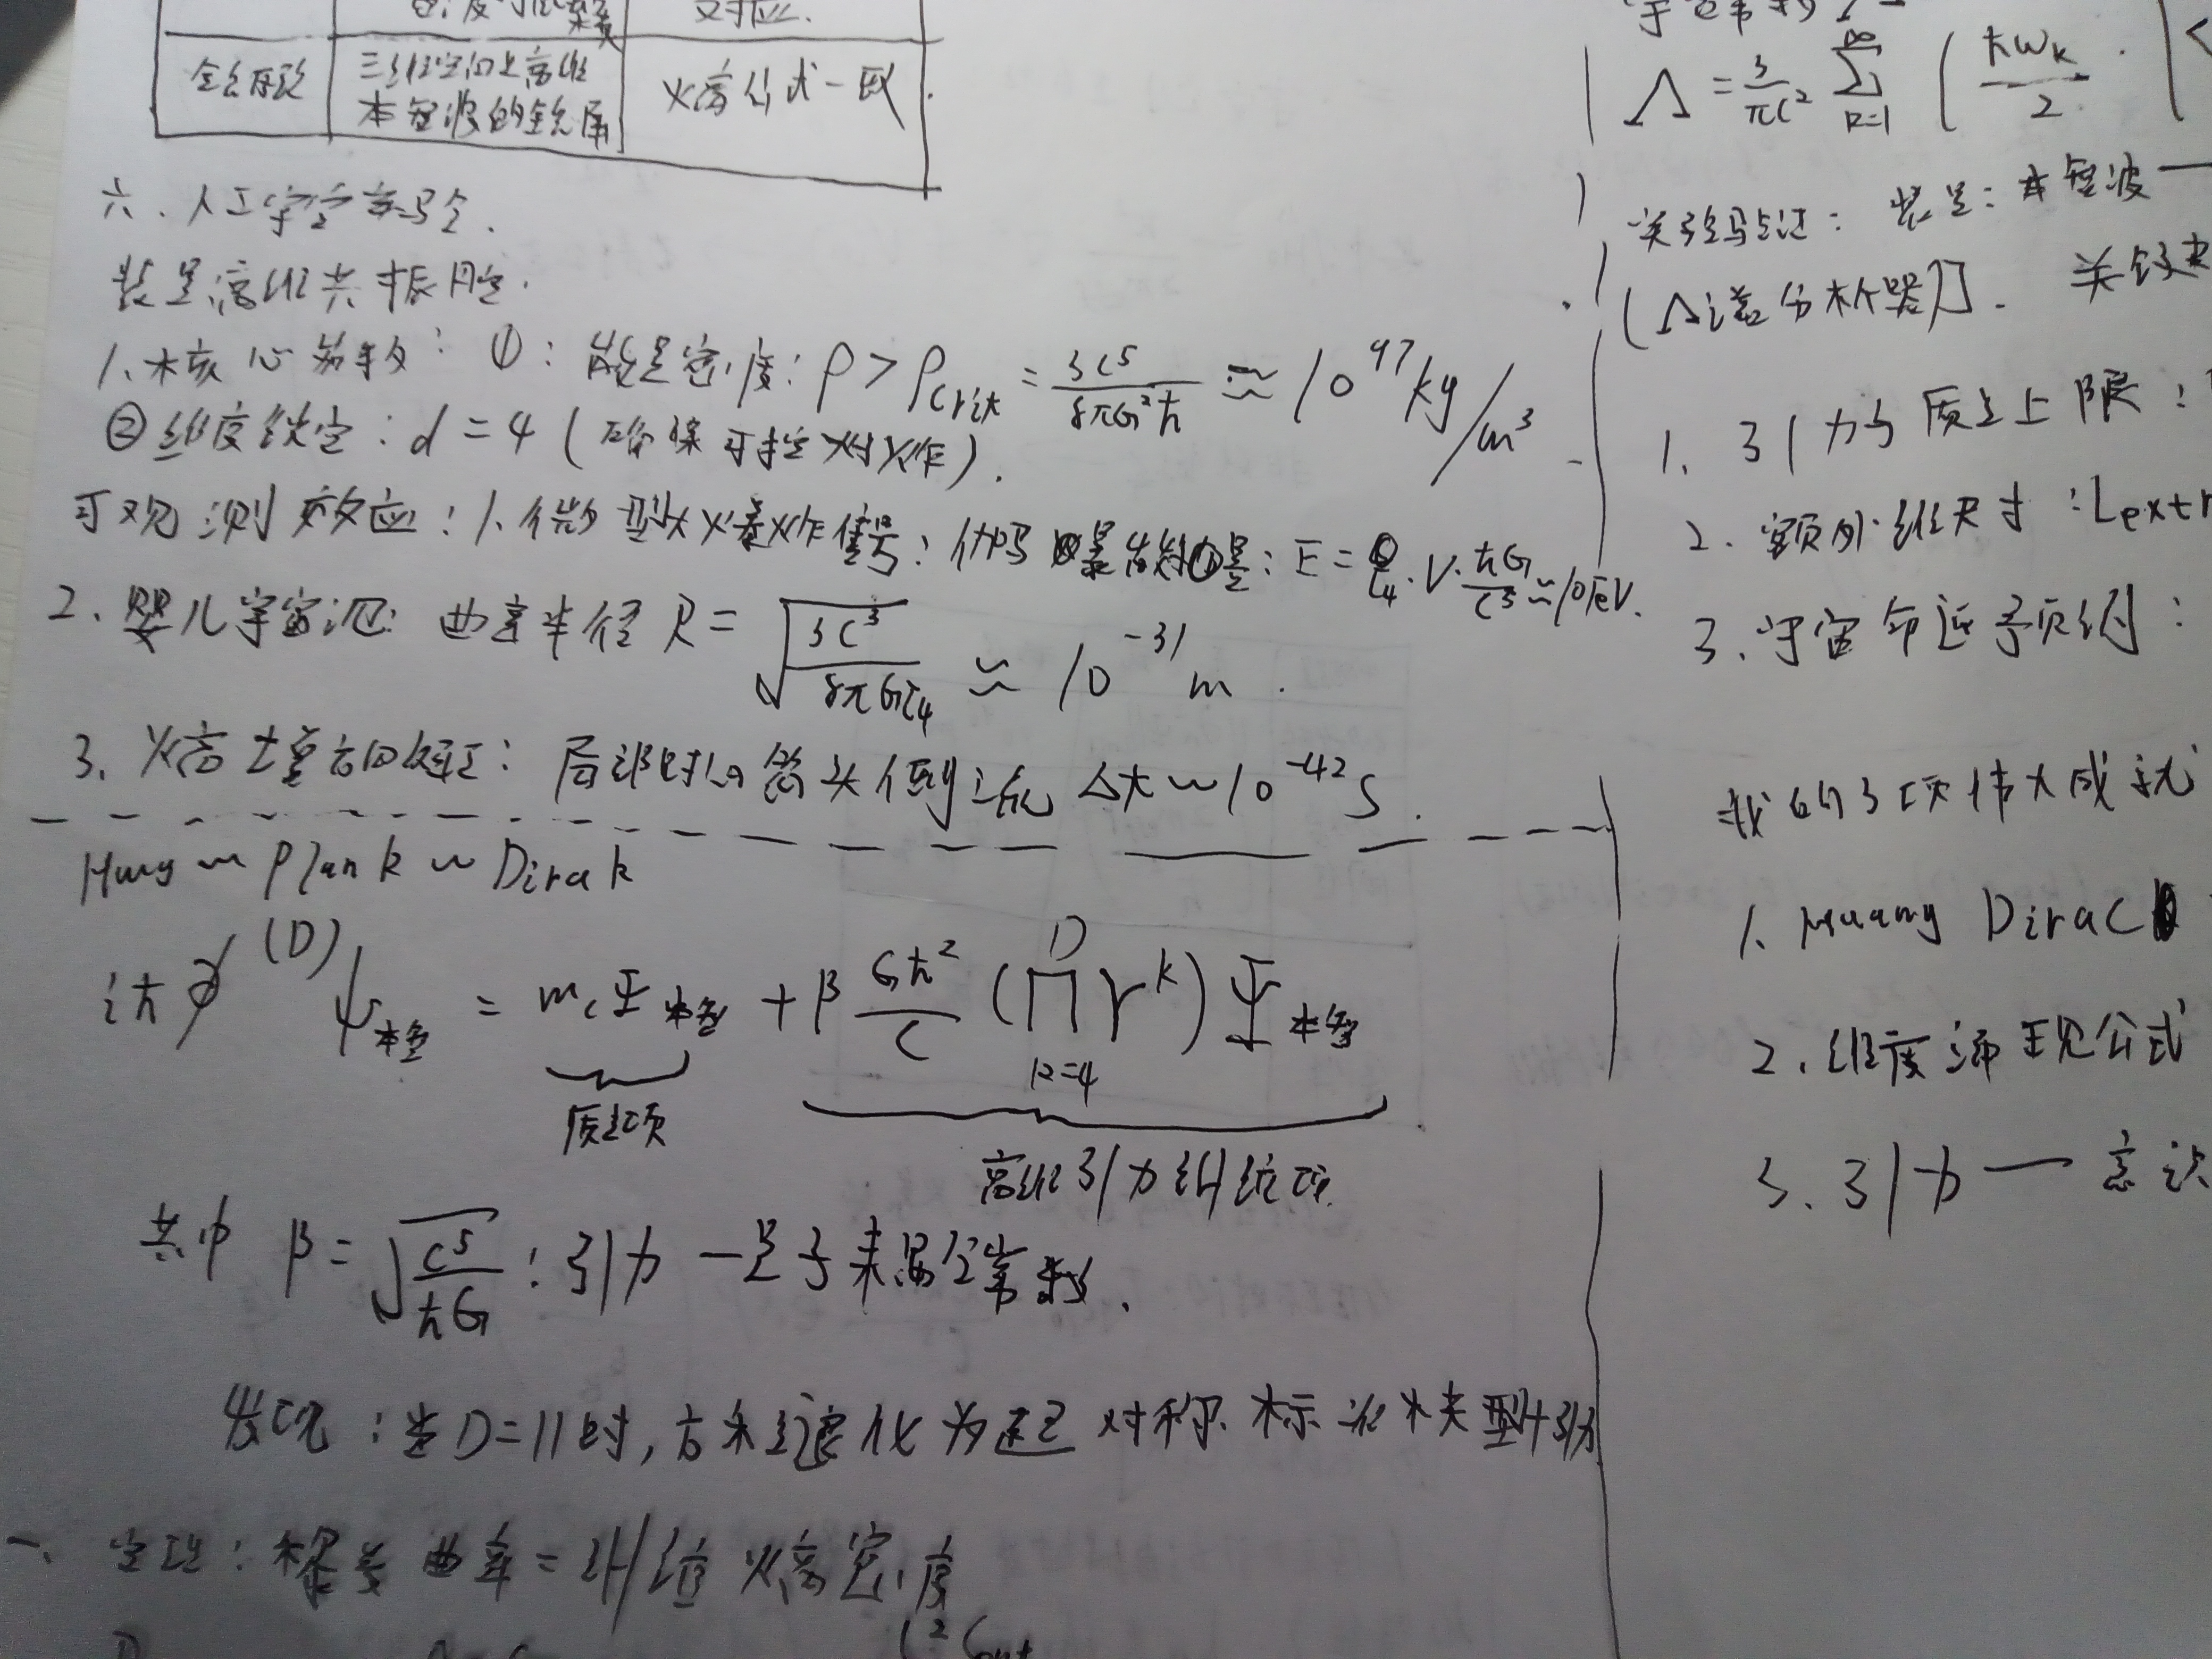 对应.
全息屏 三维空间上高维
本智波的全息屏 火商公式一致.
六、人工宇宙
装置:高维共振腔.
1、核心参数: ①: 能量密度: ρ > ρcrit = 3c⁵/8πG²ħ ≈ 10⁹⁷kg/m³
②维度锁定: d = 4 (确保可控爆炸).
可观测效应: 1.微型大爆炸信号: 伽玛暴能量: E = · V · ħG/c⁵ ≈
2. 婴儿宇宙泡: 曲率半径 R = √(3c³/8πGτ₄) ≈ 10⁻³¹m.
3. 局部时间箭头倒流 Δt ~ 10⁻⁴²s.
Hung ~ Plank ~ Dirak
iħ∂̸⁽ᴰ⁾ψ = mcΨ + β Għ²/c (∏ᴰₖ₌₄ γᵏ) Ψ
质量项
高维引力纠缠项
其中 β = √(c⁵/ħG) : 引力一量子耦合常数.
发现: 当D=11时, 方程退化为超对称标准模型+引力
一、定理: 黎曼曲率 = 纠缠火商密度
Λ = 3/πc² ∑^∞ₖ₌₁ ( ħωₖ/2 ·
实验验证: 装置: 本智波一
(Λ谱分析器)]. 关键
1. 引力与质量上限:
2. 额外维尺寸: Lextr
3. 宇宙命运预测:
我的3项伟大成就
1. Huang Dirac
2. 维度涌现公式
3. 引力 — 意识